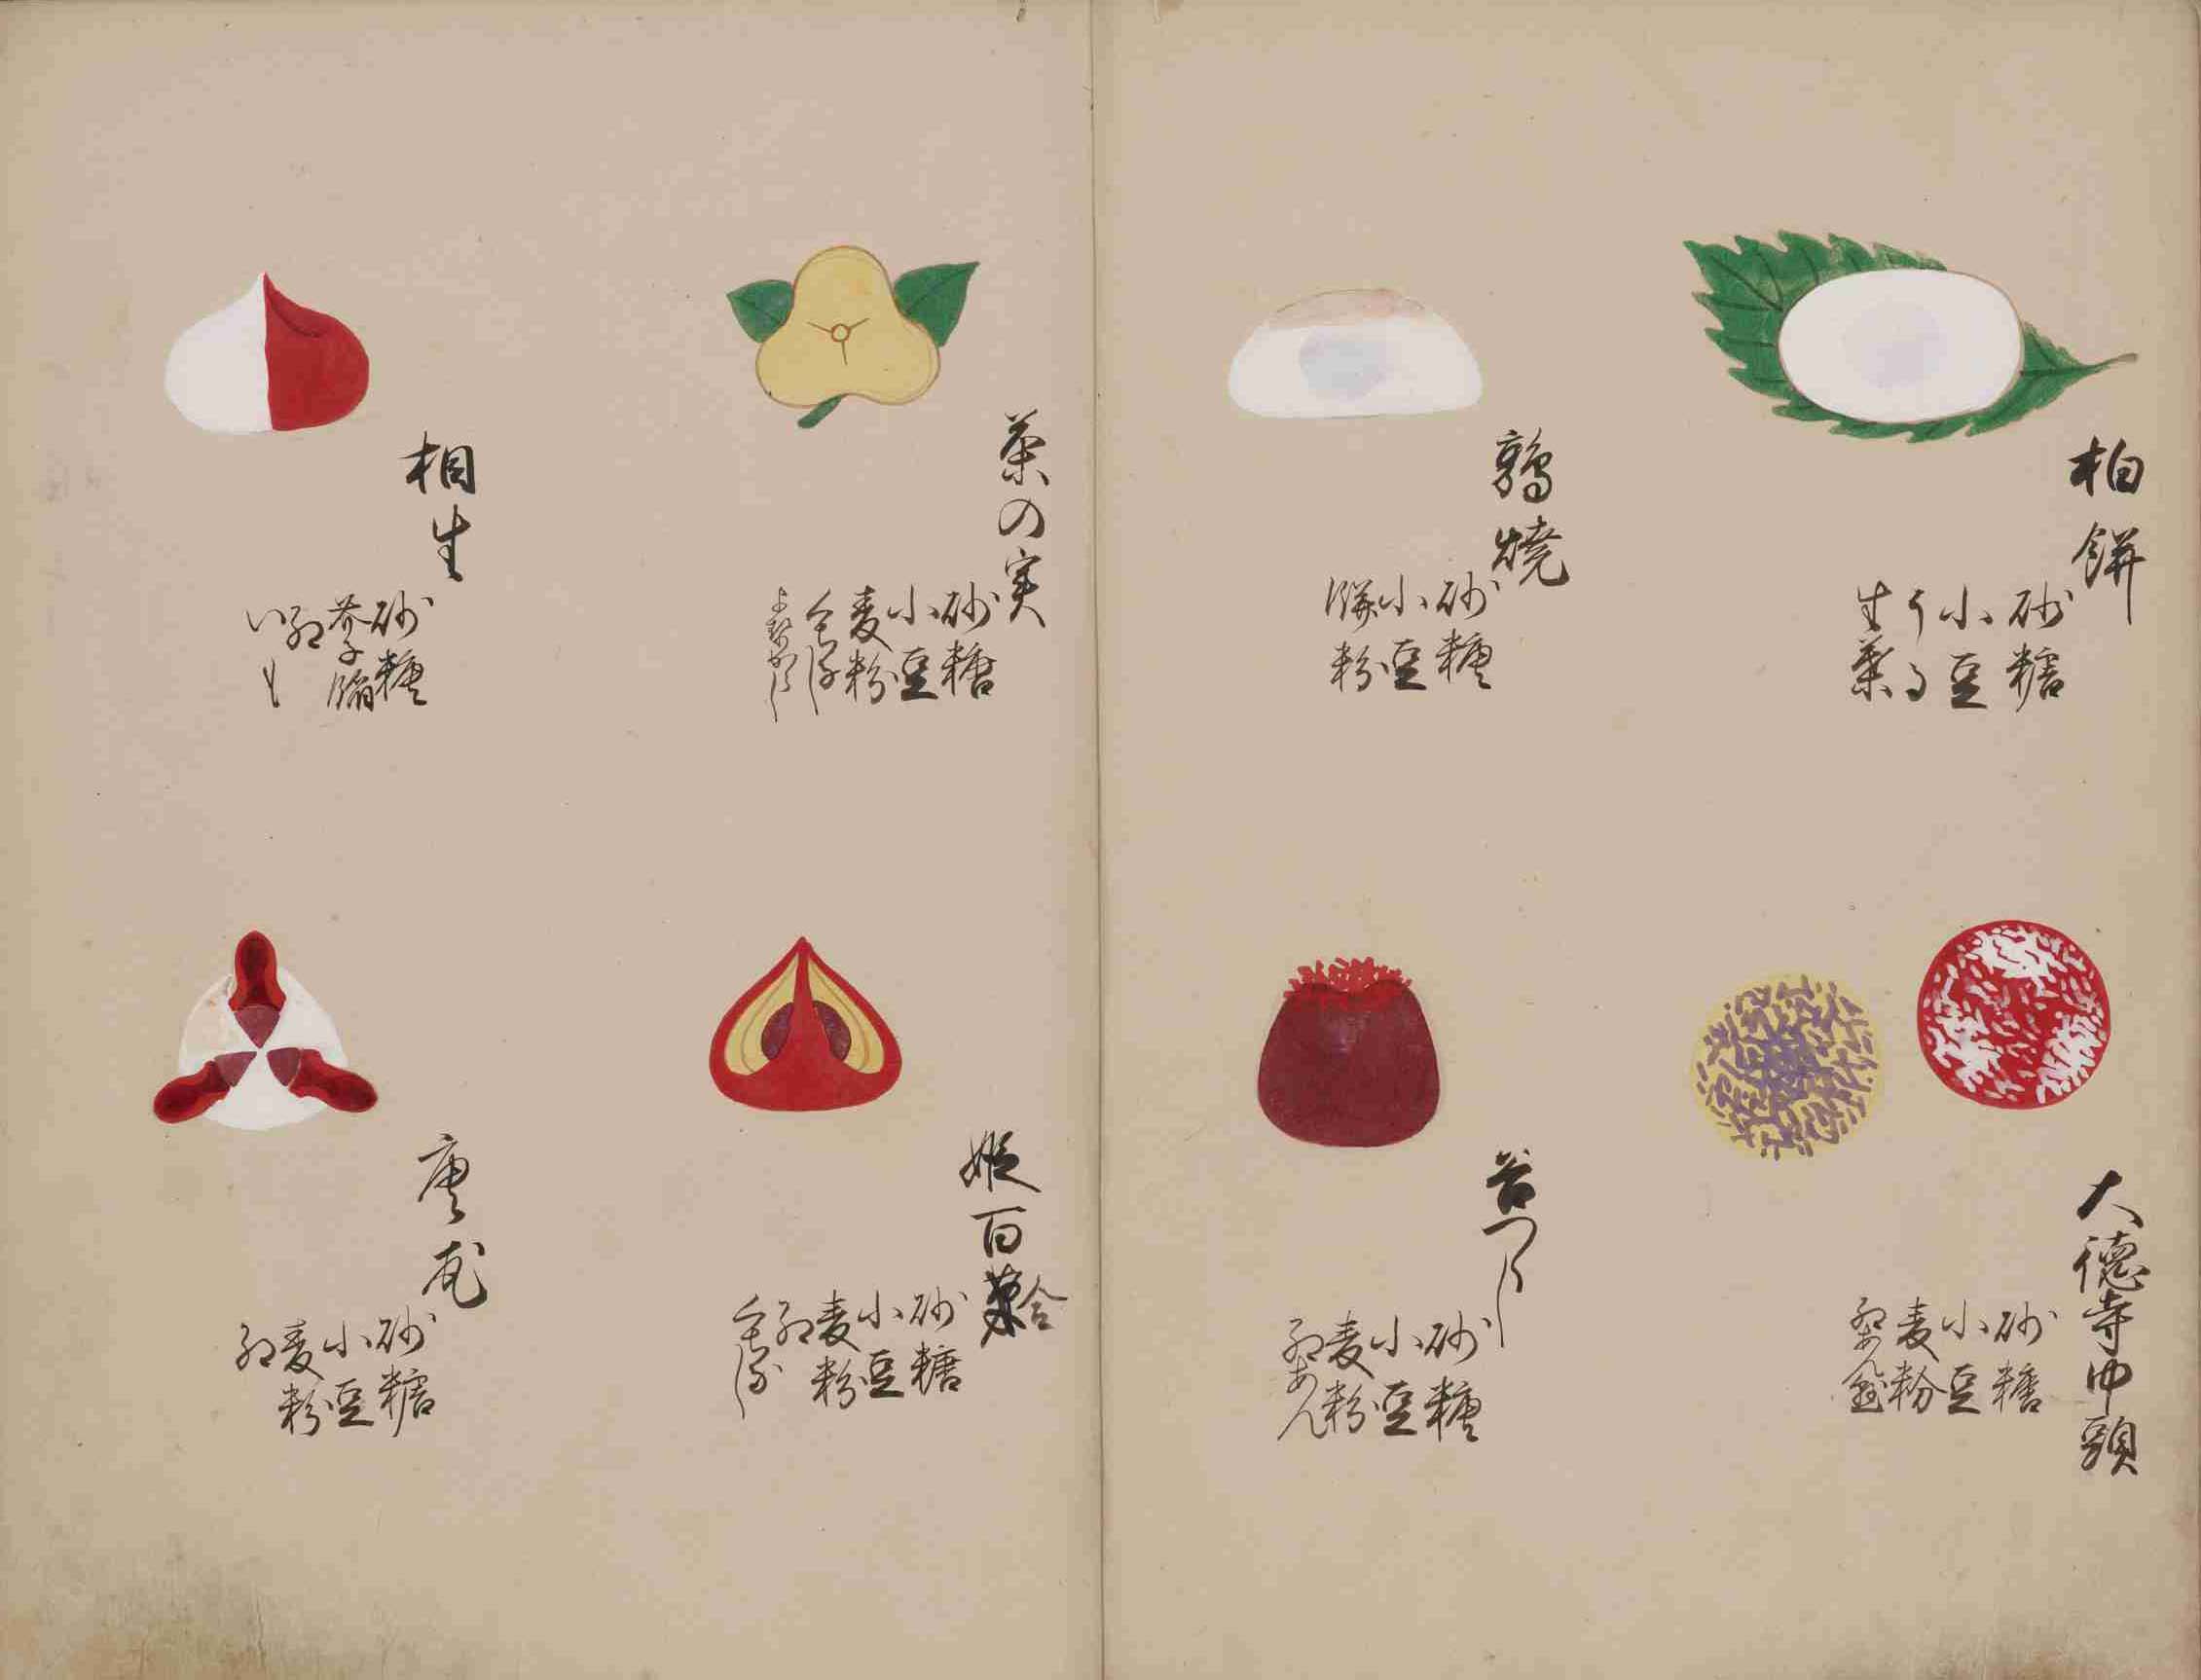 柏餅
砂糖
小豆
うる
生葉
大徳寺巾頭
砂糖
小豆
麦粉
鶉焼
砂糖
小豆
餅粉
苔つゝじ
砂糖
小豆
麦粉
紅あん
茶の実
砂糖
小豆
麦粉
姫百合
砂糖
小豆
麦粉
紅
相生
砂糖
紅
いも
唐花
砂糖
小豆
麦粉
紅